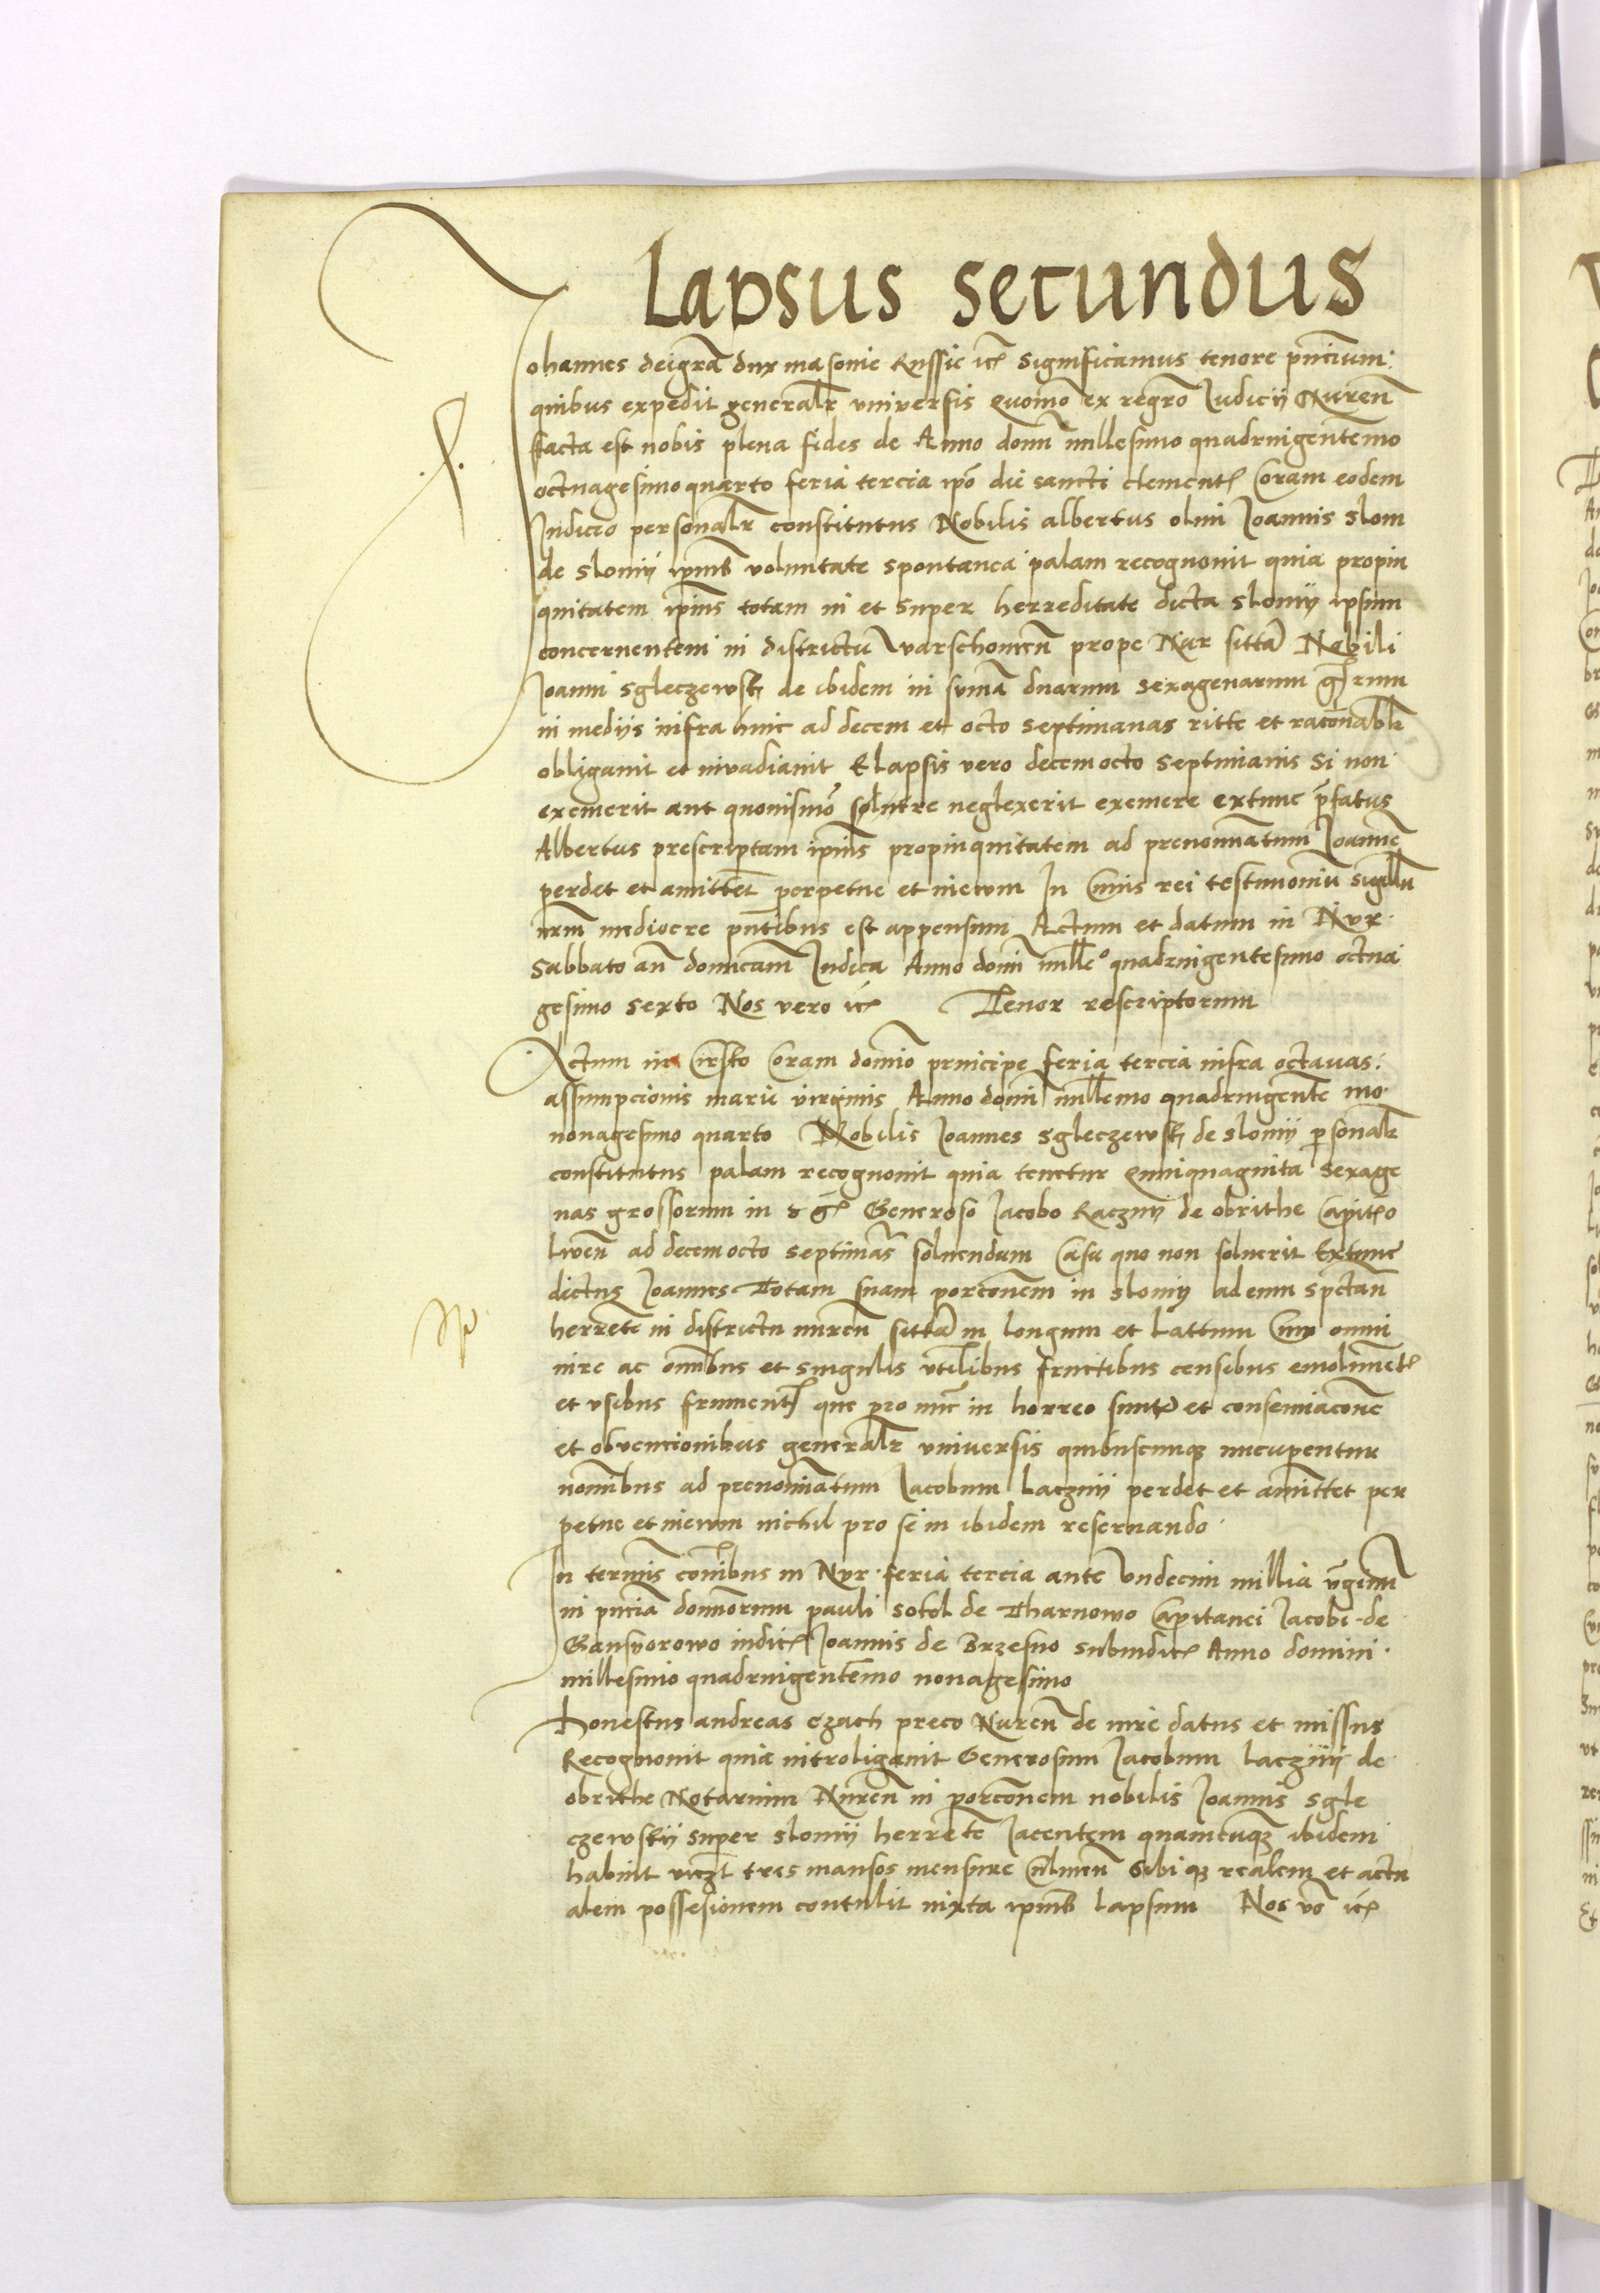 Lapsus secundus
Johannes dei gra dux masouie Russie etc significamus tenore pntium
quibus expedit generalr vniuersis Quomo ex regro Iudicij Nuren
facta est nobis plena fides de Anno domi millesimo quadringentesimo
octuagesimo quarto feria tercia ipo die sancti clementis Coram eodem
Iudicio personalr constitutus Nobilis albertus olim Ioannis slom
de slomij ipius voluntate spontanea palam recognouit quia propin
quitatem ipius totam in et super herreditate dicta slomy ipsum
concernentem in districtu warschouien prope Nur sitta Nobili
Ioanni sgleczewsky de ibidem in suma duarum sexagenarum grrum
in medijs infra hinc ad decem et octo septimanas ritte et raconablr
obligauit et inuadiauit Elapsis vero decem octo septimanis si non
exemerit aut quouismo soluere neglexerit exemere extunc prefatus
Albertus prescriptam ipius propinquitatem ad prenominatum Ioannem
perdet et amittet perpetue et in euum In Cuius rei testimoniu sigillu
nrm mediocre pntibus est appensum Actum et datum in Nur
Sabbato an domicam Iudica Anno domi mille° quadringentesimo octua
gesimo sexto Nos vero etc Tenor rescriptorum
Actum in Cirsko Coram domino principe feria tercia infra octauas
assumpcionis marie virginis Anno domi millemo quadringente mo
nonagesimo quarto Nobilis Ioannes sgleczewsky de slomij personalr
constitutus palam recognouit quia tenetur quinquaginta sexage
nas grossorum in gr Generoso Iacobo Raczny de obrithe Capiteo
liwen ad decem octo septimas soluendum Casu quo non soluerit Extunc
dictus Ioannes Totam suam porconem in slomy ad eum spectan
herrete in districtu nuren sitta in longum et lattum Cum omni
iure ac omibus et singulis vtilibus fructibus censibus emolimetis
et vsibus frumentis que pro nuc in horreo sunt et conseminacone
et obuencionibus generalr vniuersis quibuscunque nucupentur
nominibus ad prenominatum Iacobum Laczny perdet et amittet per
petue et in euum nichil pro se in ibidem reseruando
In terminis comibus in Nur feria tercia ante vndecim millia virginum
in pncia dominorum pauli sokol de Tharnowo Capitanei Iacobi de
Gansyorowo iudicis Ioannis de Brzesno subiudicis Anno domini
millesimo quadringentesimo nonagesimo
Honestus andreas czach preco Nuren de iure datus et missus
Recognouit quia intro ligauit Generosum Iacobum laczny de
obrithe Notarium Nuren in porconem nobilis Ioannis sgle
czewskij super slomij herrete Iacentem quamcuque ibidem
habuit viczt tres mansos mensure Culmen sibi que realem et actu
alem possesionem contulit iuxta ipius lapsum Nos vo etc